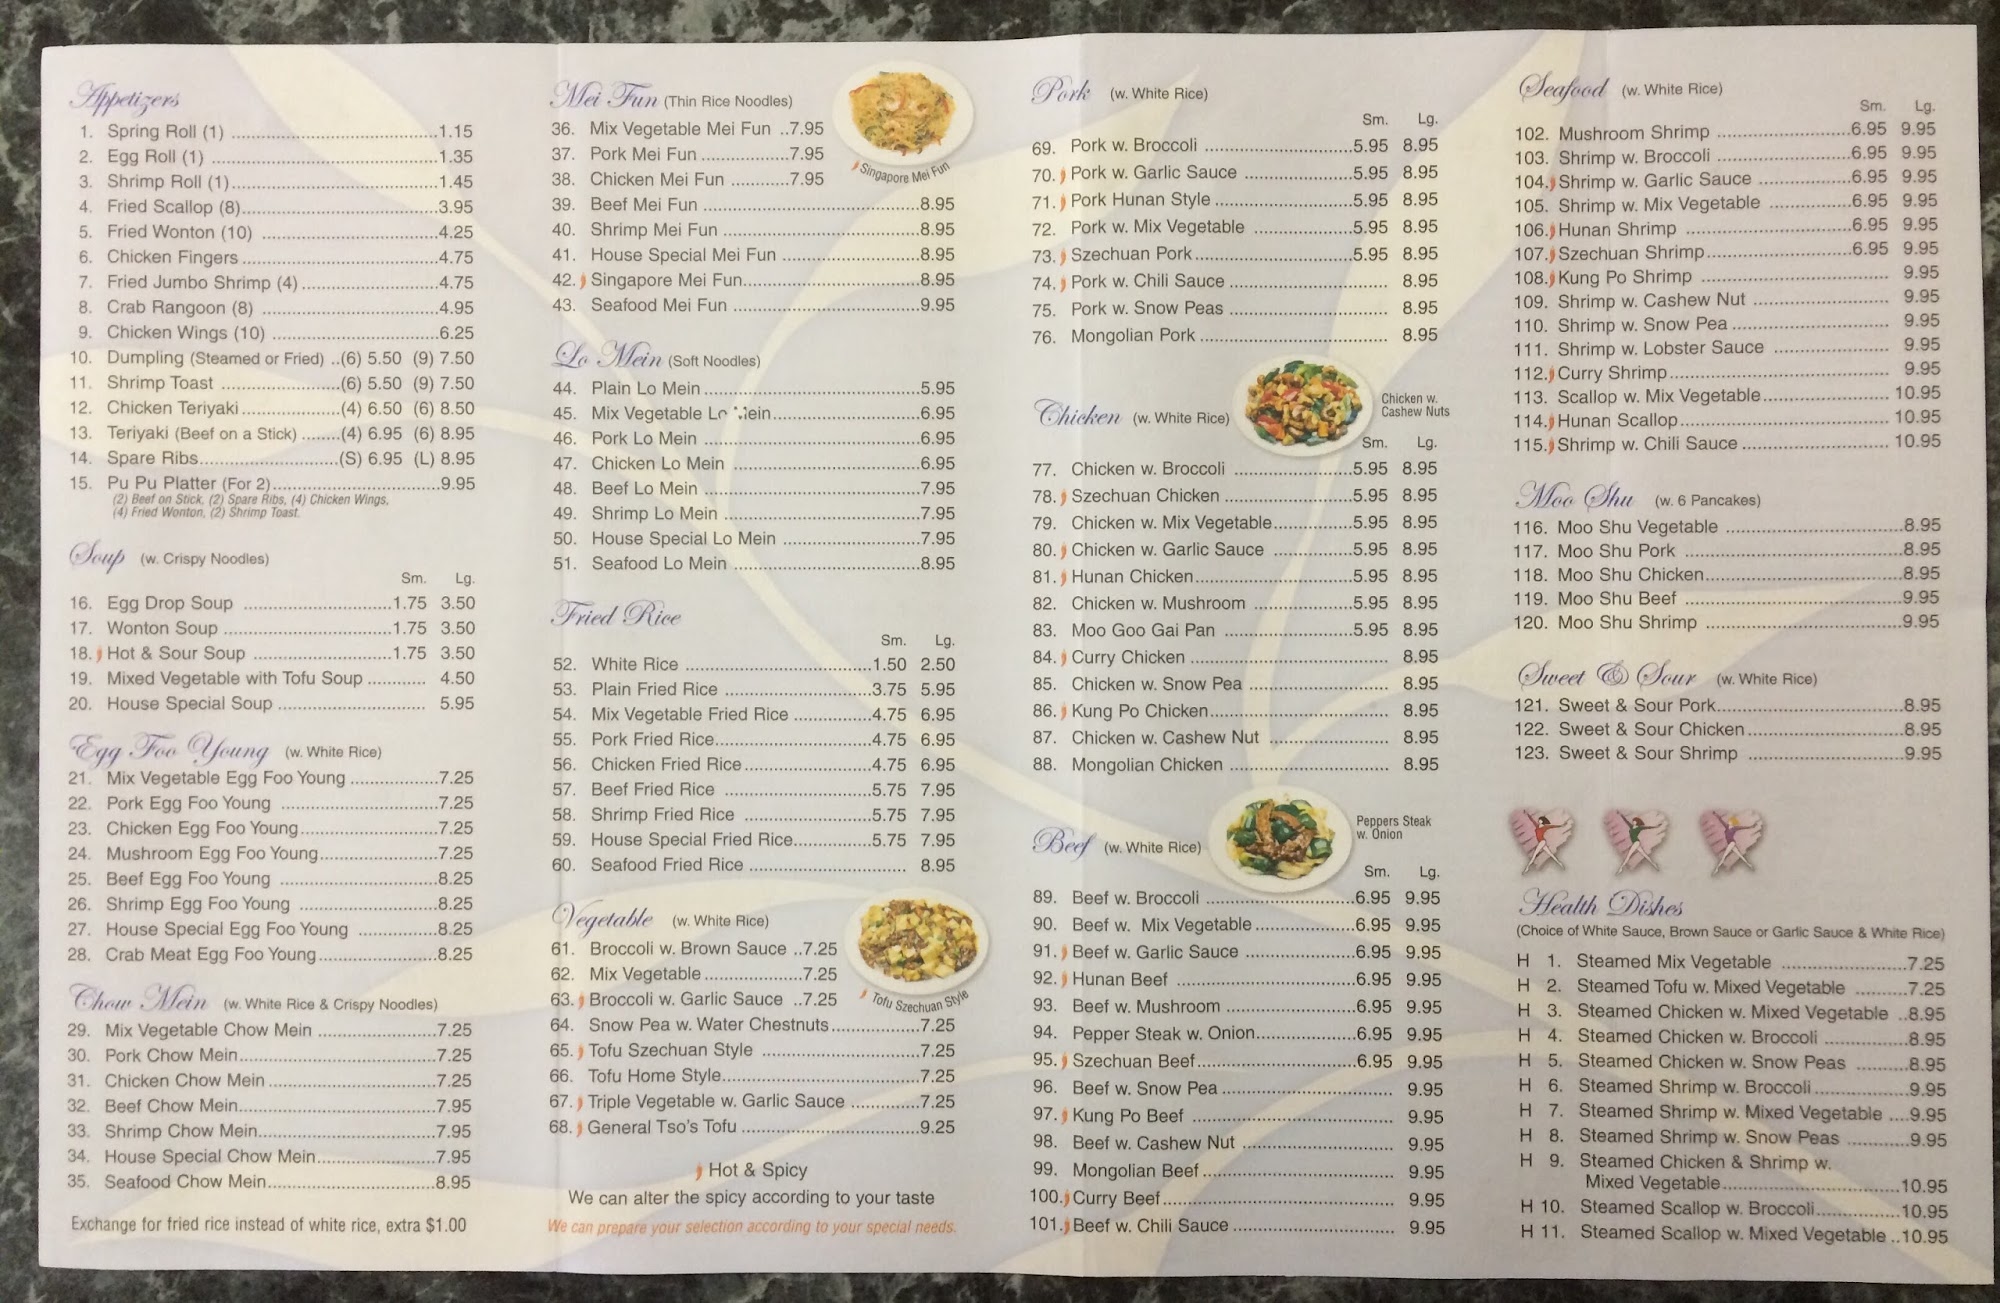 Appetizers
1. Spring Roll (1) 1.15
2. Egg Roll (1) 1.35
3. Shrimp Roll (1) 1.45
4. Fried Scallop (8) 3.95
5. Fried Wonton (10) 4.25
6. Chicken Fingers 4.75
7. Fried Jumbo Shrimp (4) 4.75
8. Crab Rangoon (8) 4.95
9. Chicken Wings (10) 6.25
10. Dumpling (Steamed or Fried) ..(6) 5.50 (9) 7.50
11. Shrimp Toast (6) 5.50 (9) 7.50
12. Chicken Teriyaki (4) 6.50 (6) 8.50
13. Teriyaki (Beef on a Stick) (4) 6.95 (6) 8.95
14. Spare Ribs (S) 6.95 (L) 8.95
15. Pu Pu Platter (For 2) 9.95
(2) Beef on Stick, (2) Spare Ribs, (4) Chicken Wings,
(4) Fried Wonton, (2) Shrimp Toast.
Soup (w. Crispy Noodles)
Sm. Lg.
16. Egg Drop Soup 1.75 3.50
17. Wonton Soup 1.75 3.50
18. Hot & Sour Soup 1.75 3.50
19. Mixed Vegetable with Tofu Soup 4.50
20. House Special Soup 5.95
Egg Foo Young (w. White Rice)
21. Mix Vegetable Egg Foo Young 7.25
22. Pork Egg Foo Young 7.25
23. Chicken Egg Foo Young 7.25
24. Mushroom Egg Foo Young 7.25
25. Beef Egg Foo Young 8.25
26. Shrimp Egg Foo Young 8.25
27. House Special Egg Foo Young 8.25
28. Crab Meat Egg Foo Young 8.25
Chow Mein (w. White Rice & Crispy Noodles)
29. Mix Vegetable Chow Mein 7.25
30. Pork Chow Mein 7.25
31. Chicken Chow Mein 7.25
32. Beef Chow Mein 7.95
33. Shrimp Chow Mein 7.95
34. House Special Chow Mein 7.95
35. Seafood Chow Mein 8.95
Exchange for fried rice instead of white rice, extra $1.00
Mei Fun (Thin Rice Noodles)
36. Mix Vegetable Mei Fun ..7.95
37. Pork Mei Fun 7.95
38. Chicken Mei Fun 7.95
39. Beef Mei Fun 8.95
40. Shrimp Mei Fun 8.95
41. House Special Mei Fun 8.95
42. Singapore Mei Fun 8.95
43. Seafood Mei Fun 9.95
Singapore Mei Fun
Lo Mein (Soft Noodles)
44. Plain Lo Mein 5.95
45. Mix Vegetable Lo Mein 6.95
46. Pork Lo Mein 6.95
47. Chicken Lo Mein 6.95
48. Beef Lo Mein 7.95
49. Shrimp Lo Mein 7.95
50. House Special Lo Mein 7.95
51. Seafood Lo Mein 8.95
Fried Rice
Sm. Lg.
52. White Rice 1.50 2.50
53. Plain Fried Rice 3.75 5.95
54. Mix Vegetable Fried Rice 4.75 6.95
55. Pork Fried Rice 4.75 6.95
56. Chicken Fried Rice 4.75 6.95
57. Beef Fried Rice 5.75 7.95
58. Shrimp Fried Rice 5.75 7.95
59. House Special Fried Rice 5.75 7.95
60. Seafood Fried Rice 8.95
Vegetable (w. White Rice)
61. Broccoli w. Brown Sauce ..7.25
62. Mix Vegetable 7.25
63. Broccoli w. Garlic Sauce ..7.25
64. Snow Pea w. Water Chestnuts 7.25
65. Tofu Szechuan Style 7.25
66. Tofu Home Style 7.25
67. Triple Vegetable w. Garlic Sauce 7.25
68. General Tso's Tofu 9.25
Tofu Szechuan Style
Hot & Spicy
We can alter the spicy according to your taste
We can prepare your selection according to your special needs.
Pork (w. White Rice)
Sm. Lg.
69. Pork w. Broccoli 5.95 8.95
70. Pork w. Garlic Sauce 5.95 8.95
71. Pork Hunan Style 5.95 8.95
72. Pork w. Mix Vegetable 5.95 8.95
73. Szechuan Pork 5.95 8.95
74. Pork w. Chili Sauce 8.95
75. Pork w. Snow Peas 8.95
76. Mongolian Pork 8.95
Chicken (w. White Rice)
Chicken w.
Cashew Nuts
Sm. Lg.
77. Chicken w. Broccoli 5.95 8.95
78. Szechuan Chicken 5.95 8.95
79. Chicken w. Mix Vegetable 5.95 8.95
80. Chicken w. Garlic Sauce 5.95 8.95
81. Hunan Chicken 5.95 8.95
82. Chicken w. Mushroom 5.95 8.95
83. Moo Goo Gai Pan 5.95 8.95
84. Curry Chicken 8.95
85. Chicken w. Snow Pea 8.95
86. Kung Po Chicken 8.95
87. Chicken w. Cashew Nut 8.95
88. Mongolian Chicken 8.95
Beef (w. White Rice)
Peppers Steak
w. Onion
Sm. Lg.
89. Beef w. Broccoli 6.95 9.95
90. Beef w. Mix Vegetable 6.95 9.95
91. Beef w. Garlic Sauce 6.95 9.95
92. Hunan Beef 6.95 9.95
93. Beef w. Mushroom 6.95 9.95
94. Pepper Steak w. Onion 6.95 9.95
95. Szechuan Beef 6.95 9.95
96. Beef w. Snow Pea 9.95
97. Kung Po Beef 9.95
98. Beef w. Cashew Nut 9.95
99. Mongolian Beef 9.95
100. Curry Beef 9.95
101. Beef w. Chili Sauce 9.95
Seafood (w. White Rice)
Sm. Lg.
102. Mushroom Shrimp 6.95 9.95
103. Shrimp w. Broccoli 6.95 9.95
104. Shrimp w. Garlic Sauce 6.95 9.95
105. Shrimp w. Mix Vegetable 6.95 9.95
106. Hunan Shrimp 6.95 9.95
107. Szechuan Shrimp 6.95 9.95
108. Kung Po Shrimp 9.95
109. Shrimp w. Cashew Nut 9.95
110. Shrimp w. Snow Pea 9.95
111. Shrimp w. Lobster Sauce 9.95
112. Curry Shrimp 9.95
113. Scallop w. Mix Vegetable 10.95
114. Hunan Scallop 10.95
115. Shrimp w. Chili Sauce 10.95
Moo Shu (w. 6 Pancakes)
116. Moo Shu Vegetable 8.95
117. Moo Shu Pork 8.95
118. Moo Shu Chicken 8.95
119. Moo Shu Beef 9.95
120. Moo Shu Shrimp 9.95
Sweet & Sour (w. White Rice)
121. Sweet & Sour Pork 8.95
122. Sweet & Sour Chicken 8.95
123. Sweet & Sour Shrimp 9.95
Health Dishes
(Choice of White Sauce, Brown Sauce or Garlic Sauce & White Rice)
H 1. Steamed Mix Vegetable 7.25
H 2. Steamed Tofu w. Mixed Vegetable 7.25
H 3. Steamed Chicken w. Mixed Vegetable ..8.95
H 4. Steamed Chicken w. Broccoli 8.95
H 5. Steamed Chicken w. Snow Peas 8.95
H 6. Steamed Shrimp w. Broccoli 9.95
H 7. Steamed Shrimp w. Mixed Vegetable 9.95
H 8. Steamed Shrimp w. Snow Peas 9.95
H 9. Steamed Chicken & Shrimp w.
Mixed Vegetable 10.95
H 10. Steamed Scallop w. Broccoli 10.95
H 11. Steamed Scallop w. Mixed Vegetable ..10.95